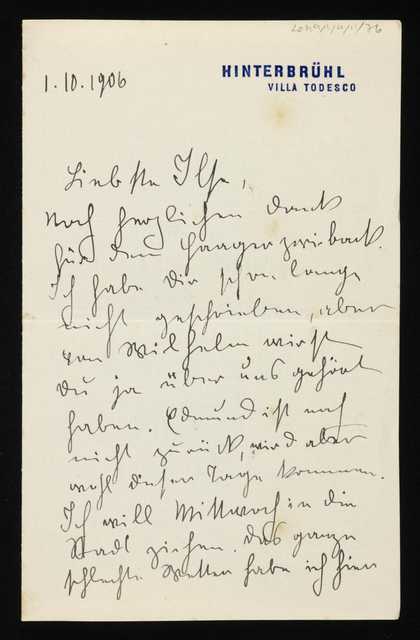 1.10.1906
HINTERBRÜHL
VILLA TODESCO
Liebste Ilse,
noch herzlichen Dank
für den Haager Zwieback.
Ich habe dir schon lange
nicht geschrieben, aber
von Wilhelm wirst
du ja über uns gehört
haben. Edmund ist noch
nicht zurück, wird aber
wohl dieser Tage kommen.
Ich will Mittwoch in die
Stadt ziehen. Das ganze
schlechte Wetter habe ich hier